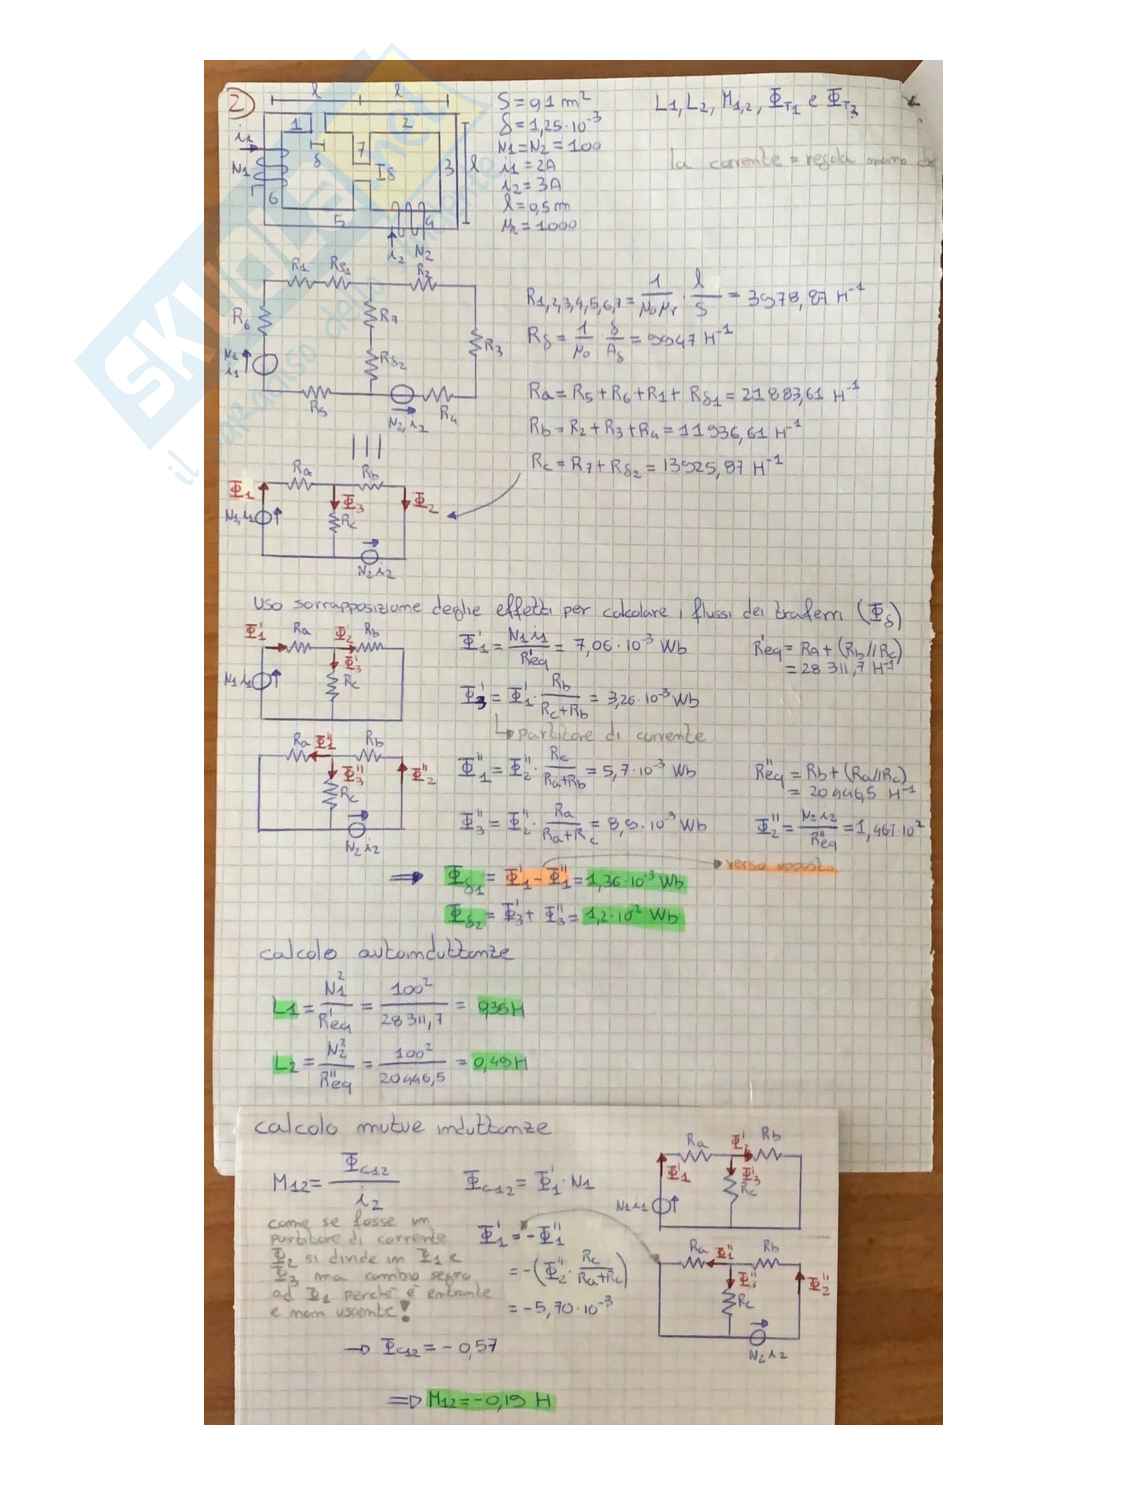 2)
l l
1 2
i1
δ 7
N1 Iδ 3 l
6
5 4
i2 N2
S = 0,1 m²
δ = 1,25·10⁻³
N1 = N2 = 100
i1 = 2A
i2 = 3A
l = 0,5 m
μr = 1000
L1, L2, M1,2, ΦT1 e ΦT3
la corrente = regola
R1 Rδ1 R2
R6 R7 R3
N1 i1 Rδ2
R5 N2 i2 R4
R1,2,3,4,5,6,7 = 1/μ0μr · l/S = 3978,87 H⁻¹
Rδ = 1/μ0 δ/Aδ = 9947 H⁻¹
Ra = R5 + R6 + R1 + Rδ1 = 21883,61 H⁻¹
Rb = R2 + R3 + R4 = 11936,61 H⁻¹
Rc = R7 + Rδ2 = 13925,87 H⁻¹
Ra Rb
Φ1 Φ3 Φ2
N1 i1 Rc
N2 i2
uso sovrapposizione degli effetti per calcolare i flussi dei traferri (Φδ)
Φ1' Ra Φ2' Rb
Φ3'
N1 i1 Rc
Φ1' = N1 i1/Req' = 7,06·10⁻³ Wb
Req' = Ra + (Rb//Rc)
= 28311,7 H⁻¹
Φ3' = Φ1' · Rb/Rc+Rb = 3,26·10⁻³ Wb
↳ partitore di corrente
Ra Φ1'' Rb
Φ3'' Φ2''
Rc
N2 i2
Φ1'' = Φ2'' · Rc/Ra+Rb = 5,7·10⁻³ Wb
Req'' = Rb + (Ra//Rc)
= 20446,5 H⁻¹
Φ3'' = Φ2'' · Ra/Ra+Rc = 8,9·10⁻³ Wb
Φ2'' = N2 i2/Req'' = 1,467·10²
⇒ Φδ1 = Φ1' - Φ1'' = 1,36·10⁻³ Wb
verso
Φδ2 = Φ3' + Φ3'' = 1,2·10² Wb
calcolo autoinduttanze
L1 = N1²/Req' = 100²/28311,7 = 0,35 H
L2 = N2²/Req'' = 100²/20446,5 = 0,49 H
calcolo mutue induttanze
M12 = Φc12/i2
Φc12 = Φ1' · N1
come se fosse un
partitore di corrente
Φ2 si divide in Φ1 e
Φ3 ma cambio segno
ad Φ1 perché è entrante
e non uscente!
Φ1' = -Φ1''
= -(Φ2'' · Rc/Ra+Rc)
= -5,70·10⁻³
Ra Φ2' Rb
Φ1' Φ3'
Rc
N1 i1
Ra Φ1'' Rb
Φ3'' Φ2''
Rc
N2 i2
→ Φc12 = -0,57
⇒ M12 = -0,19 H
SKUOLA.net
il paradiso dello studente